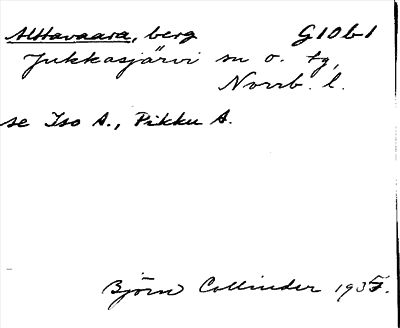 Alttavaara, berg G10b1
Jukkasjärvi sn o. tg,
Norrb. l.
se Iso A., Pikku A.
Björn Collinder 1935.